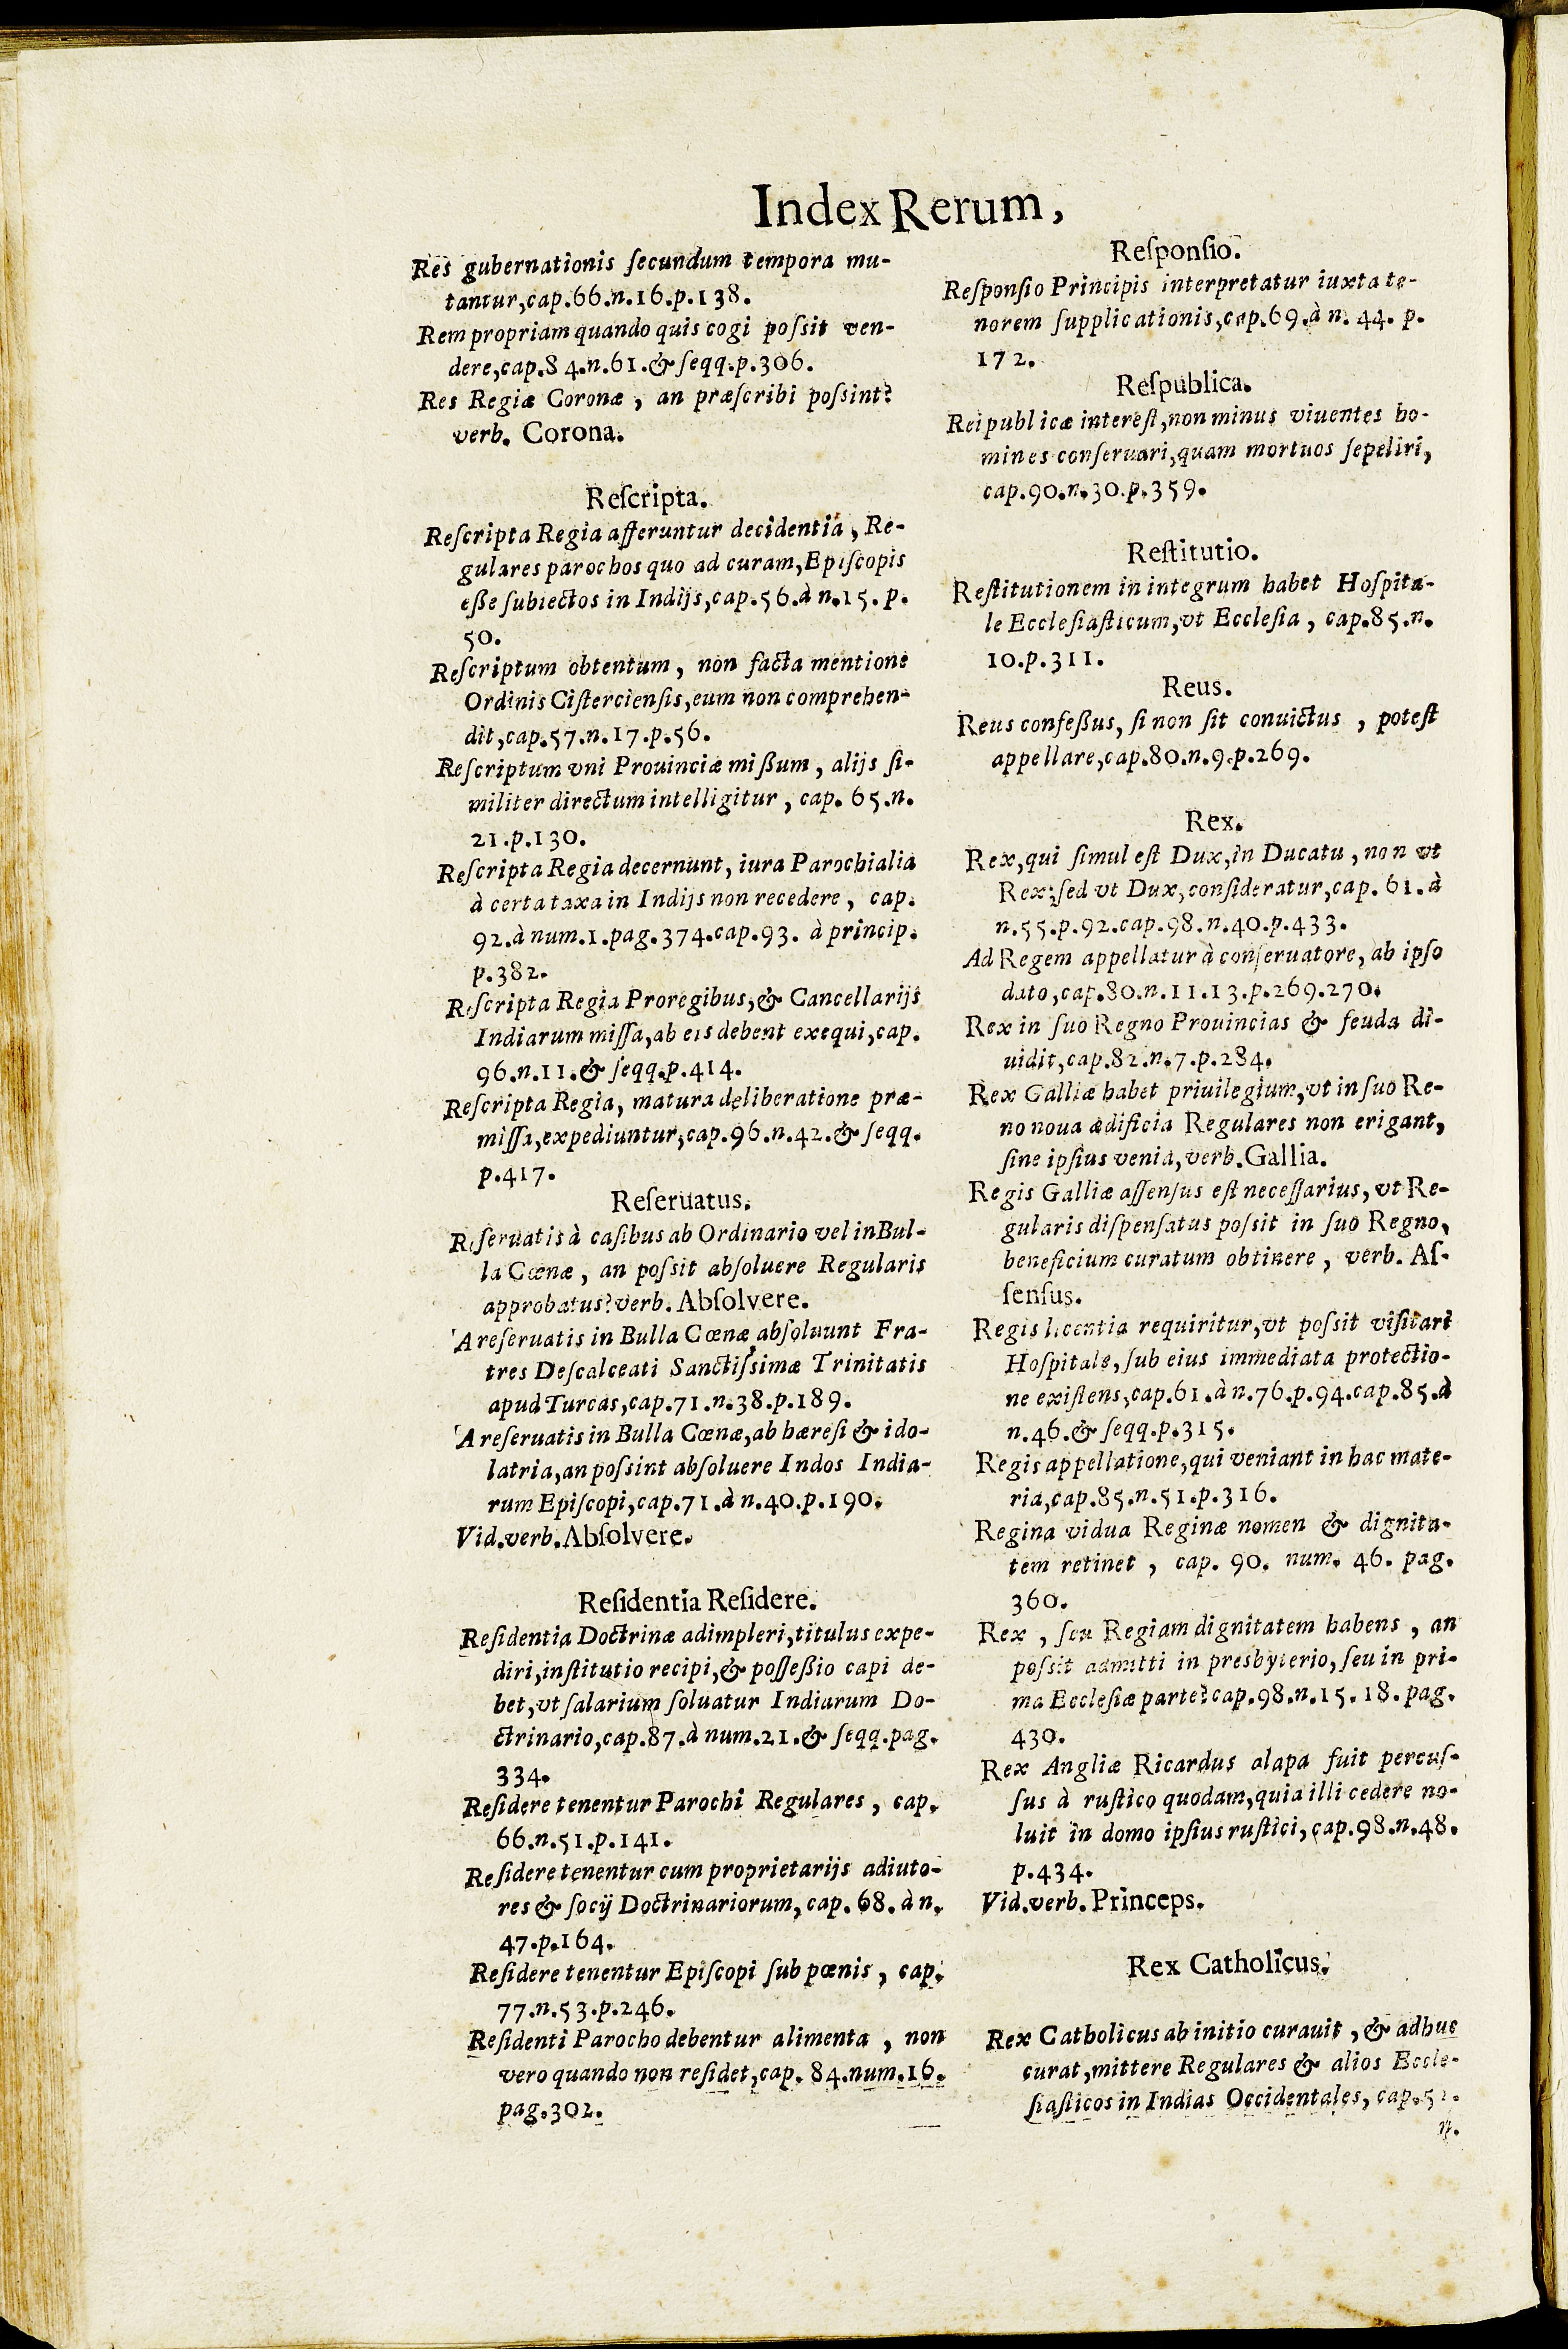 Index Rerum,
Res gubernationis ſecundum tempora mu-
tantur,cap.66.n.16.p.138.
Rem propriam quando quis cogi poſsit ven-
dere,cap.84.n.61.& ſeqq.p.306.
Res Regiæ Coronæ, an præſcribi poſsint?
verb. Corona.
Reſcripta.
Reſcripta Regia afferuntur decidentia, Re-
gulares parochos quo ad curam,Epiſcopis
eße ſubiectos in Indijs,cap.56.à n.15.p.
50.
Reſcriptum obtentum, non facta mentione
Ordinis Ciſtercienſis,eum non comprehen-
dit,cap.57.n.17.p.56.
Reſcriptum vni Prouinciæ mißum, alijs ſi-
militer directum intelligitur, cap. 65.n.
21.p.130.
Reſcripta Regia decernunt, iura Parochialia
à certa taxa in Indijs non recedere, cap.
92.à num.1.pag.374.cap.93. à princip.
p.382.
Reſcripta Regia Proregibus,& Cancellarijs
Indiarum miſſa,ab eis debent exequi,cap.
96.n.11.& ſeqq.p.414.
Reſcripta Regia, matura deliberatione præ-
miſſa,expediuntur,cap.96.n.42.& ſeqq.
p.417.
Reſeruatus.
Reſeruatis à caſibus ab Ordinario vel in Bul-
la Cœnæ, an poſsit abſoluere Regularis
approbatus?verb. Abſolvere.
A reſeruatis in Bulla Cœnæ abſoluunt Fra-
tres Deſcalceati Sanctiſsimæ Trinitatis
apud Turcas,cap.71.n.38.p.189.
A reſeruatis in Bulla Cœnæ,ab hæreſi & ido-
latria,an poſsint abſoluere Indos India-
rum Epiſcopi,cap.71.à n.40.p.190.
Vid.verb.Abſolvere.
Reſidentia Reſidere.
Reſidentia Doctrinæ adimpleri,titulus expe-
diri,inſtitutio recipi,& poſſeßio capi de-
bet,vt ſalarium ſoluatur Indiarum Do-
ctrinario,cap.87.à num.21.& ſeqq.pag.
334.
Reſidere tenentur Parochi Regulares, cap.
66.n.51.p.141.
Reſidere tenentur cum proprietarijs adiuto-
res & ſocij Doctrinariorum, cap.68.à n.
47.p.164.
Reſidere tenentur Epiſcopi ſub pœnis, cap.
77.n.53.p.246.
Reſidenti Parocho debentur alimenta, non
vero quando non reſidet,cap. 84.num.16.
pag.302.
Reſponſio.
Reſponſio Principis interpretatur iuxta te-
norem ſupplicationis,cap.69.à n. 44. p.
172.
Reſpublica.
Reipublicæ intereſt,non minus viuentes ho-
mines conſeruari,quam mortuos ſepeliri,
cap.90.n.30.p.359.
Reſtitutio.
Reſtitutionem in integrum habet Hoſpita-
le Eccleſiaſticum,vt Eccleſia, cap.85.n.
10.p.311.
Reus.
Reus confeßus, ſi non ſit conuictus, poteſt
appellare,cap.80.n.9.p.269.
Rex.
Rex,qui ſimul eſt Dux,in Ducatu, non vt
Rex;ſed vt Dux,conſideratur,cap. 61.à
n.55.p.92.cap.98.n.40.p.433.
Ad Regem appellatur à conſeruatore, ab ipſo
dato,cap.80.n.11.13.p.269.270.
Rex in ſuo Regno Prouincias & feuda di-
uidit,cap.82.n.7.p.284.
Rex Galliæ habet priuilegium,vt in ſuo Re-
no noua ædificia Regulares non erigant,
ſine ipſius venia,verb.Gallia.
Regis Galliæ aſſenſus eſt neceſſarius, vt Re-
gularis diſpenſatus poſsit in ſuo Regno,
beneficium curatum obtinere, verb. Aſ-
ſenſus.
Regis licentia requiritur,vt poſsit viſitari
Hoſpitale, ſub eius immediata protectio-
ne exiſtens,cap.61.à n.76.p.94.cap.85.à
n.46.& ſeqq.p.315.
Regis appellatione,qui veniant in hac mate-
ria,cap.85.n.51.p.316.
Regina vidua Reginæ nomen & dignita-
tem retinet, cap. 90. num. 46. pag.
360.
Rex, ſeu Regiam dignitatem habens, an
poſsit admitti in presbyterio,ſeu in pri-
ma Eccleſiæ parte?cap.98.n.15.18.pag.
430.
Rex Angliæ Ricardus alapa fuit percuſ-
ſus à ruſtico quodam,quia illi cedere no-
luit in domo ipſius ruſtici,cap.98.n.48.
p.434.
Vid.verb.Princeps.
Rex Catholicus.
Rex Catholicus ab initio curauit, & adhuc
curat,mittere Regulares & alios Eccle-
ſiaſticos in Indias Occidentales, cap.52.
n.